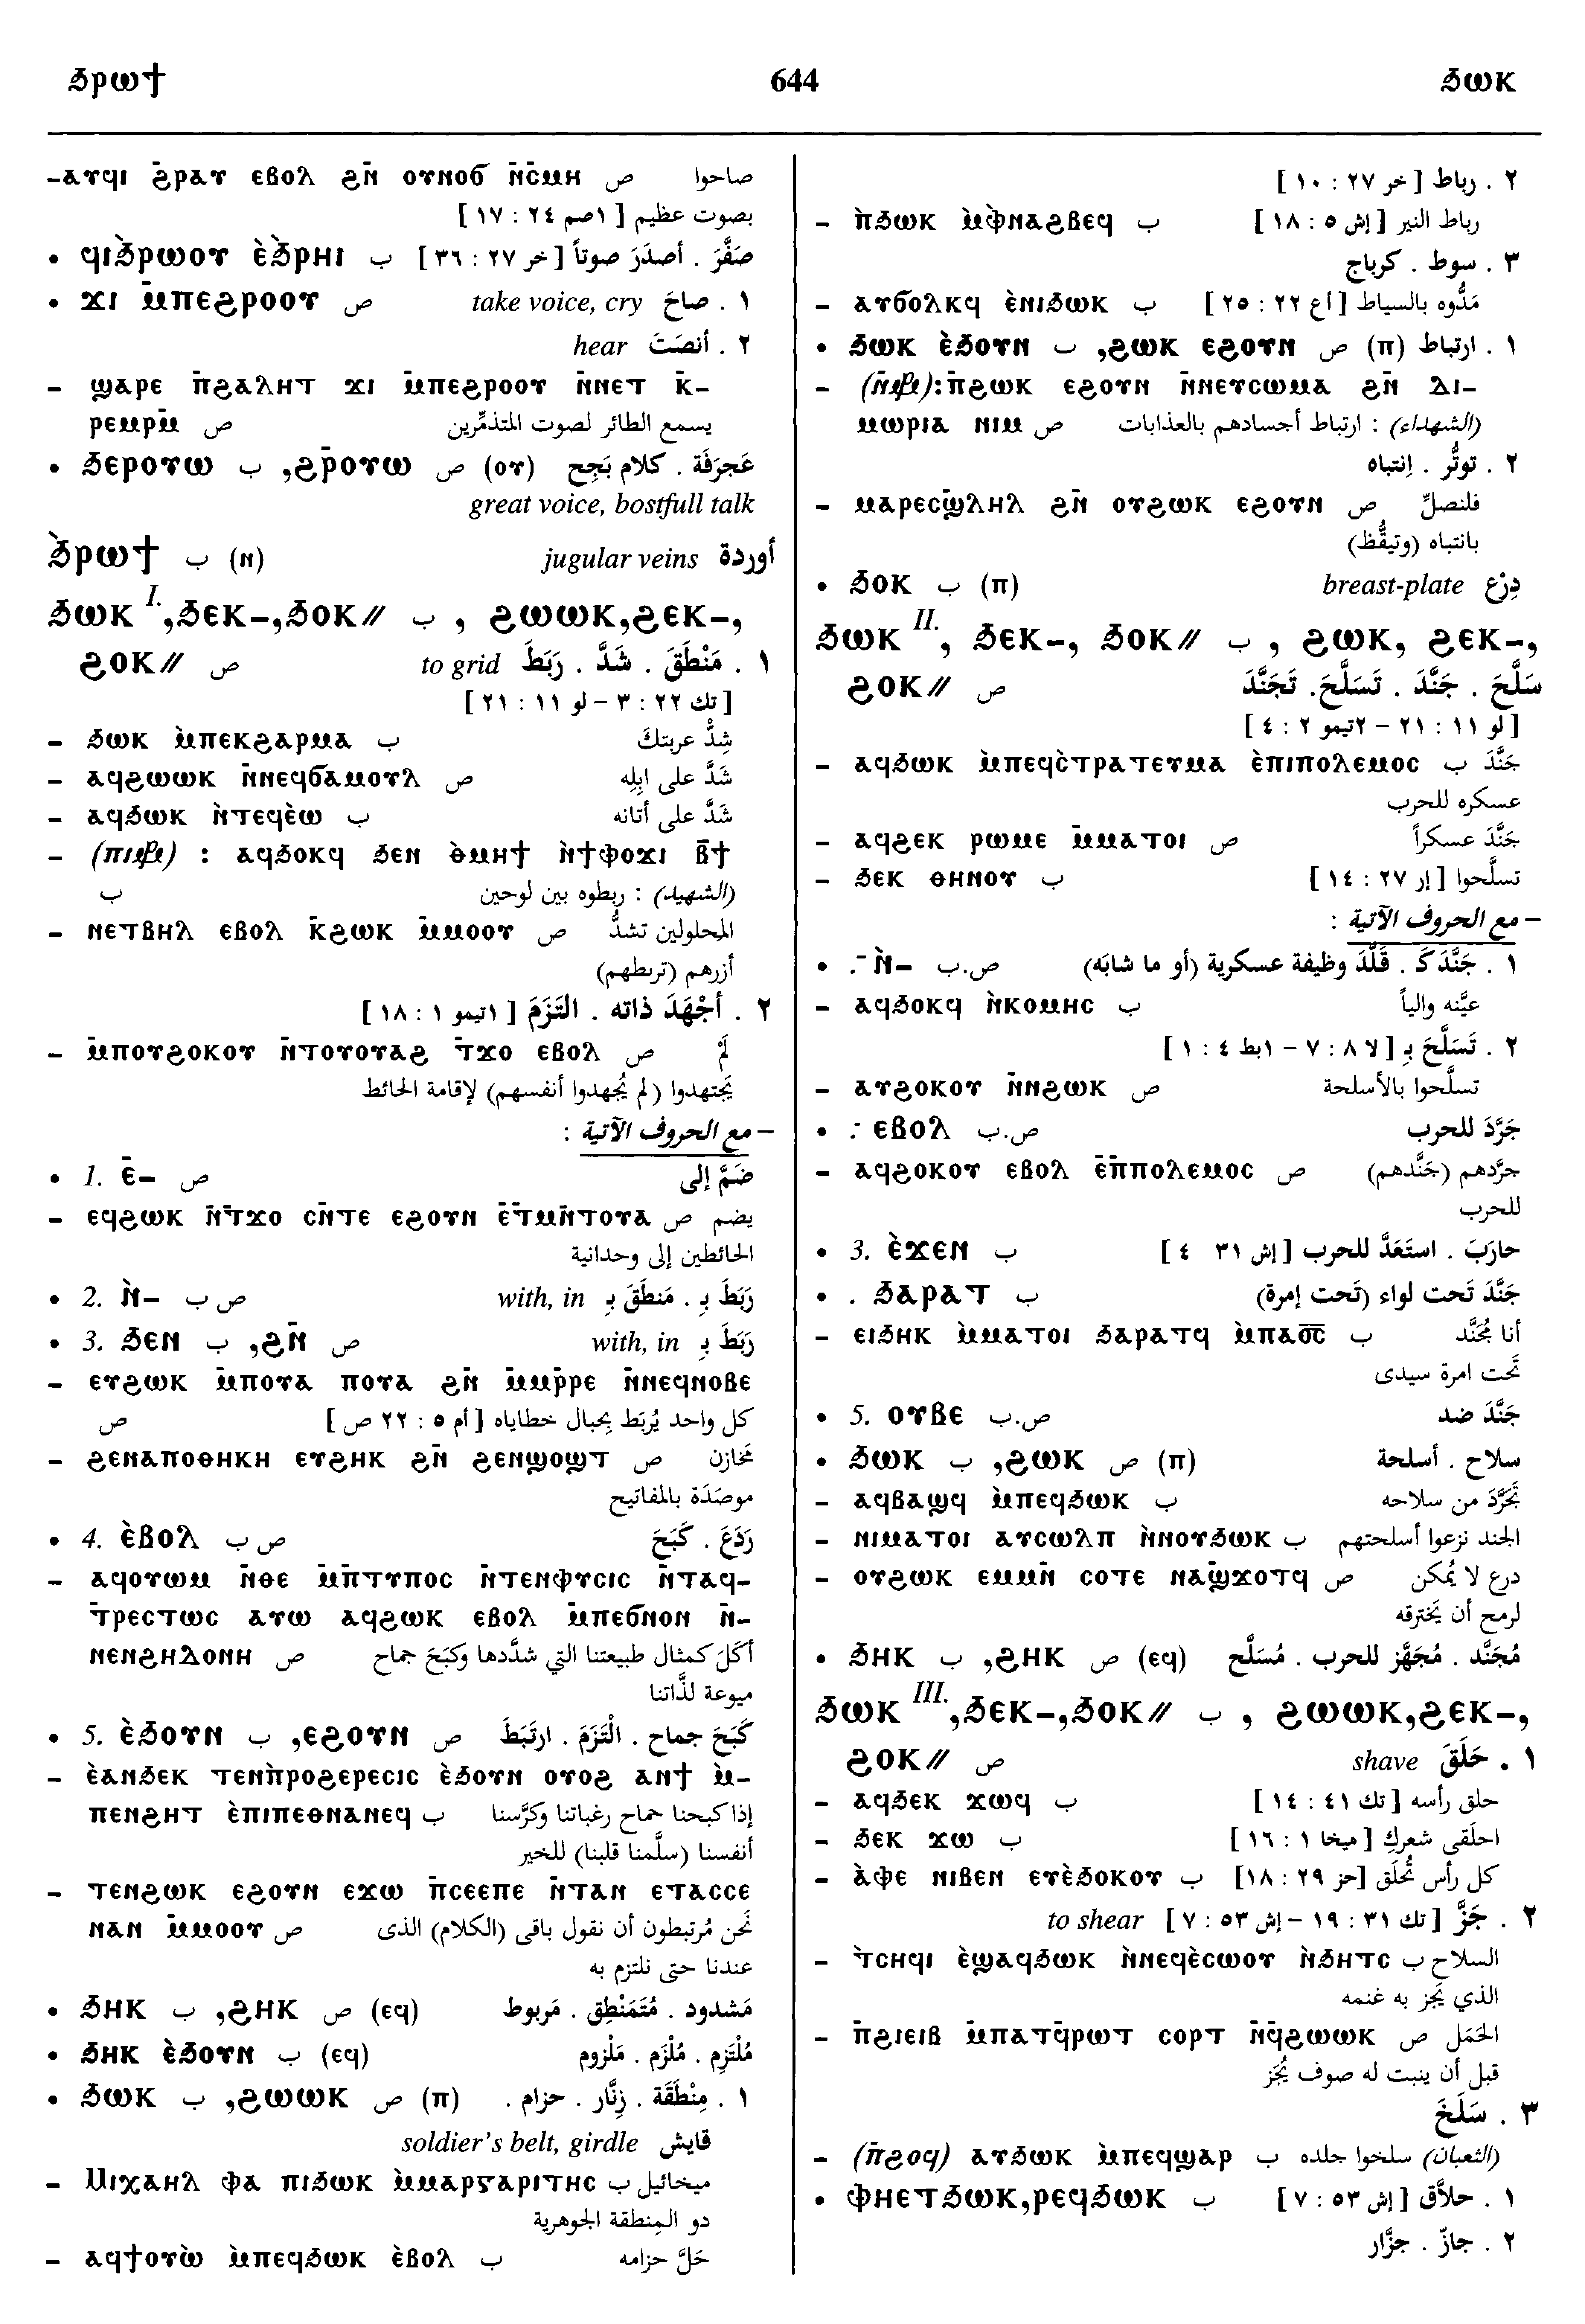 ϧⲣⲱϯ 644 ϧⲱⲕ
-ⲁⲩϥⲓ ϩ̄ⲣⲁⲩ ⲉⲃⲟⲗ ϩⲛ̄ ⲟⲩⲛⲟϭ ⲛ̄ⲥ̄ⲙⲏ ص صاحوا
بصوت عظيم [ ١صم ٢٤ : ١٧ ]
• ϥⲓϧ̀ⲣⲱⲟⲩ ⲉ̀ϧ̀ⲣⲏⲓ ب صَفَّرَ . أصدَرَ صوتاً [ خر ٢٧ : ٣٦ ]
• ϫⲓ ⲙ̄ⲡⲉϩⲣⲟⲟⲩ ص take voice, cry ١ . صاحَ
hear ٢ . أنصَتَ
– ϣⲁⲣⲉ ⲡ̄ϩⲁⲗⲏⲧ ϫⲓ ⲙ̄ⲡⲉϩⲣⲟⲟⲩ ⲛ̄ⲛⲉⲧ ⲕ̄-
ⲣⲉⲙⲣⲙ̄ ص يسمع الطائر لصوت المتذمِّرين
• ϧⲉⲣⲟⲩⲱ ب ,ϩ̄ⲣⲟⲩⲱ ص (ⲟⲩ) عَجرَفَة . كلام بَجِح
great voice, bostfull talk
ϧ̀ⲣⲱϯ ب (ⲛ) jugular veins أوردة
ϧⲱⲕ I.,ϧⲉⲕ-,ϧⲟⲕ// ب , ϩⲱⲱⲕ,ϩⲉⲕ-,
ϩⲟⲕ// ص to grid ١ . مَنْطَقَ . شَدَّ . رَبَطَ
[ تك ٢٢ : ٣ – لو ١١ : ٢١ ]
– ϧⲱⲕ ⲙ̀ⲡⲉⲕϩⲁⲣⲙⲁ ب شِدُّ عربتكَ
– ⲁϥϩⲱⲱⲕ ⲛ̄ⲛⲉϥϭⲁⲙⲟⲩⲗ ص شَدَّ على ابِلِه
– ⲁϥϧⲱⲕ ⲛ̀ⲧⲉϥⲉ̀ⲱ ب شَدَّ على أتانه
– : ⲁϥϧⲟⲕϥ ϧⲉⲛ ⲑ̀ⲙⲏϯ ⲛ̀ϯⲫⲟϫⲓ ⲃ̄ϯ
ب (الشهيد) : ربطوه بين لوحين
– ⲛⲉⲧⲃⲏⲗ ⲉⲃⲟⲗ ⲕ̄ϩⲱⲕ ⲙ̄ⲙⲟⲟⲩ ص المحلولين تشدُّ
أزرهم (تربطهم)
٢ . أجْهَدَ ذاته . التَزَمَ [ ١تيمو ١ : ١٨ ]
– ⲙ̄ⲡⲟⲩϩⲟⲕⲟⲩ ⲛ̄ⲧⲟⲩⲟⲩⲁϩ ⲧ̄ϫⲟ ⲉⲃⲟⲗ ص لَمْ
يَجتهدوا (لم يُجهدوا أنفسهم) لإقامة الحائط
– مع الحروف الآتية :
• 1. ⲉ̄– ص ضَمَّ إلى
– ⲉϥϩⲱⲕ ⲛ̄ⲧ̄ϫⲟ ⲥⲛ̄ⲧⲉ ⲉϩⲟⲩⲛ ⲉ̄ⲧⲙⲛ̄ⲧⲟⲩⲁ ص يضم
الحائطين إلى وحدانية
• 2. ⲛ̀– ص ب with, in رَبَطَ بِـ . مَنطَقَ بِـ
• 3. ϧⲉⲛ ب ,ϩⲛ̄ ص with, in رَبَطَ بِـ
– ⲉⲩϩⲱⲕ ⲙ̄ⲡⲟⲩⲁ ⲡⲟⲩⲁ ϩⲛ̄ ⲙ̄ⲙⲣ̄ⲣⲉ ⲛ̄ⲛⲉϥⲛⲟⲃⲉ
ص كل واحد يُربَط بِحبال خطاياه [ أم ٥ : ٢٢ ص ]
– ϩⲉⲛⲁⲡⲟⲑⲏⲕⲏ ⲉⲩϩⲏⲕ ϩⲛ̄ ϩⲉⲛϣⲟϣⲧ ص مَخازن
موصَدَة بالمفاتيح
• 4. ⲉ̀ⲃⲟⲗ ص ب رَدَعَ . كَبَحَ
– ⲁϥⲟⲩⲱⲙ ⲛ̄ⲑⲉ ⲙ̄ⲡ̄ⲧⲩⲡⲟⲥ ⲛ̄ⲧⲉⲛⲫⲩⲥⲓⲥ ⲛ̄ⲧⲁϥ-
ⲧ̄ⲣⲉⲥⲧⲱⲥ ⲁⲩⲱ ⲁϥϩⲱⲕ ⲉⲃⲟⲗ ⲙ̄ⲡⲉϭⲛⲟⲛ ⲛ̄-
ⲛⲉⲛϩⲏⲇⲟⲛⲏ ص أكَلَ كمثال طبيعتنا التي شدَّدها وكَبَحَ جماح
ميوعة لذَّاتنا
• 5. ⲉ̀ϧⲟⲩⲛ ب ,ⲉϩⲟⲩⲛ ص كَبَحَ جماح . الْتَزَمَ . ارتَبَطَ
– ⲉ̀ⲁⲛϧⲉⲕ ⲧⲉⲛⲡ̀ⲣⲟϩⲉⲣⲉⲥⲓⲥ ⲉ̀ϧⲟⲩⲛ ⲟⲩⲟϩ ⲁⲛϯ ⲙ̀-
ⲡⲉⲛϩⲏⲧ ⲉ̀ⲡⲓⲡⲉⲑⲛⲁⲛⲉϥ ب إذا كبحنا جماح رغباتنا وكرَّسنا
أنفسنا (سلَّمنا قلبنا) للخير
– ⲧⲉⲛϩⲱⲕ ⲉϩⲟⲩⲛ ⲉϫⲱ ⲡ̄ⲥⲉⲉⲡⲉ ⲛ̄ⲧⲁⲛ ⲉⲧⲁⲥⲥⲉ
ⲛⲁⲛ ⲙ̄ⲙⲟⲟⲩ ص نَحن مُرتبطون أن نقول باقى (الكلام) الذى
عندنا حتى نلتزم به
• ϧⲏⲕ ب ,ϩⲏⲕ ص (ⲉϥ) مَشدود . مُتَمَنْطِق . مَربوط
• ϧⲏⲕ ⲉ̀ϧⲟⲩⲛ ب (ⲉϥ) مُلْتَزِم . مُلْزَم . مَلْزوم
• ϧⲱⲕ ب ,ϩⲱⲱⲕ ص (ⲡ) ١ . مِنْطَقَة . زِنَّار . حزام .
soldier's belt, girdle قايش
– Ⲙⲓⲭⲁⲏⲗ ⲫⲁ ⲡⲓϧⲱⲕ ⲙ̀ⲙⲁⲣⲅⲁⲣⲓⲧⲏⲥ ب ميخائيل
دو المنطقة الجوهرية
– ⲁϥϯⲟⲩⲱ̀ ⲙ̀ⲡⲉϥϧⲱⲕ ⲉ̀ⲃⲟⲗ ب حَلَّ حزامه
٢ . رباط [ خر ٢٧ : ١٠ ]
– ⲡ̀ϧⲱⲕ ⲙ̀ⲫ̀ⲛⲁϩⲃⲉϥ ب رباط النير [ إش ٥ : ١٨ ]
٣ . سوط . كرباج
– ⲁⲩϭⲟⲗⲕϥ ⲉ̀ⲛⲓϧⲱⲕ ب مَدُّوه بالسياط [ أع ٢٢ : ٢٥ ]
• ϧⲱⲕ ⲉ̀ϧⲟⲩⲛ ب ,ϩⲱⲕ ⲉϩⲟⲩⲛ ص (ⲡ) ١ . ارتباط
– :ⲡ̄ϩⲱⲕ ⲉϩⲟⲩⲛ ⲛ̄ⲛⲉⲩⲥⲱⲙⲁ ϩⲛ̄ ⲇⲓ-
ⲙⲱⲣⲓⲁ ⲛⲓⲙ ص (الشهداء) : ارتباط أجسادهم بالعذابات
٢ . توتُّر . اِنتباه
– ⲙⲁⲣⲉⲥϣ̄ⲗⲏⲗ ϩⲛ̄ ⲟⲩϩⲱⲕ ⲉϩⲟⲩⲛ ص فلنصلِّ
بانتباه (وتيقُّظ)
• ϧⲟⲕ ب (ⲡ) breast-plate دِرْع
ϧⲱⲕ II., ϧⲉⲕ-, ϧⲟⲕ// ب , ϩⲱⲕ, ϩⲉⲕ-,
ϩⲟⲕ// ص سَلَّحَ . جَنَّدَ . تَسَلَّحَ. تَجَنَّدَ
[ لو ١١ : ٢١ – ٢تيمو ٢ : ٤ ]
– ⲁϥϧⲱⲕ ⲙ̀ⲡⲉϥⲥ̀ⲧⲣⲁⲧⲉⲩⲙⲁ ⲉ̀ⲡⲓⲡⲟⲗⲉⲙⲟⲥ ب جَنَّدَ
عسكره للحرب
– ⲁϥϩⲉⲕ ⲣⲱⲙⲉ ⲙ̄ⲙⲁⲧⲟⲓ ص جَنَّدَ عسكراً
– ϧⲉⲕ ⲑⲏⲛⲟⲩ ب تسلَّحوا [ إر ٢٧ : ١٤ ]
– مع الحروف الآتية :
• ⲛ̀– ص.ب ١ . جَنَّدَ كَـ . قَلَّدَ وظيفة عسكرية (أو ما شابَه)
– ⲁϥϧⲟⲕϥ ⲛ̀ⲕⲟⲙⲏⲥ ب عيَّنه والياً
٢ . تَسَلَّحَ بِـ [ لا ٨ : ٧ – ١بط ٤ : ١ ]
– ⲁⲩϩⲟⲕⲟⲩ ⲛ̄ⲛϩⲱⲕ ص تسلَّحوا بالأسلحة
• ⲉⲃⲟⲗ ص.ب جَرَّدَ للحرب
– ⲁϥϩⲟⲕⲟⲩ ⲉⲃⲟⲗ ⲉ̄ⲡ̄ⲡⲟⲗⲉⲙⲟⲥ ص جرَّدهم (جَنَّدهم)
للحرب
• 3. ⲉ̀ϫⲉⲛ ب حارَبَ . استَعَدَّ للحرب [ إش ٣١ ٤ ]
• . ϧⲁⲣⲁⲧ ب جَنَّدَ تَحت لواء (تَحت إمرة)
– ⲉⲓϧⲏⲕ ⲙ̀ⲙⲁⲧⲟⲓ ϧⲁⲣⲁⲧϥ ⲙ̀ⲡⲁϭ̅ⲥ̅ ب أنا مُجَنَّد
تَحت امرة سيدى
• 5. ⲟⲩⲃⲉ ص.ب جَنَّدَ ضد
• ϧⲱⲕ ب ,ϩⲱⲕ ص (ⲡ) سلاح . أسلحة
– ⲁϥⲃⲁϣϥ ⲙ̀ⲡⲉϥϧⲱⲕ ب تَجَرَّدَ من سلاحه
– ⲛⲓⲙⲁⲧⲟⲓ ⲁⲩⲥⲱⲗⲡ ⲛ̀ⲛⲟⲩϧⲱⲕ ب الجند نزعوا أسلحتهم
– ⲟⲩϩⲱⲕ ⲉⲙⲙⲛ̄ ⲥⲟⲧⲉ ⲛⲁϣ̄ϫⲟⲧϥ ص درع لا يُمكن
لرمح أن يَخترقه
• ϧⲏⲕ ب ,ϩⲏⲕ ص (ⲉϥ) مُجَنَّد . مُجَهَّز للحرب . مُسَلَّح
ϧⲱⲕ III.,ϧⲉⲕ-,ϧⲟⲕ// ب , ϩⲱⲱⲕ,ϩⲉⲕ-,
ϩⲟⲕ// ص shave ١ . حَلَقَ
– ⲁϥϧⲉⲕ ϫⲱϥ ب حلق رأسه [ تك ٤١ : ١٤ ]
– ϧⲉⲕ ϫⲱ ب احلَقى شعركِ [ ميخا ١ : ١٦ ]
– ⲁ̀ⲫⲉ ⲛⲓⲃⲉⲛ ⲉⲩⲉ̀ϧⲟⲕⲟⲩ ب كل رأس تُحلَق [حز ٢٩ : ١٨]
to shear ٢ . جَزَّ [ تك ٣١ : ١٩ – إش ٥٣ : ٧ ]
– ⲧ̀ⲥⲏϥⲓ ⲉ̀ϣⲁϥϧⲱⲕ ⲛ̀ⲛⲉϥⲉ̀ⲥⲱⲟⲩ ⲛ̀ϧⲏⲧⲥ ب السلاح
الذي يَجز به غنمه
– ⲡ̄ϩⲓⲉⲓⲃ ⲙ̄ⲡⲁⲧϥ̄ⲣⲱⲧ ⲥⲟⲣⲧ ⲛ̄ϥ̄ϩⲱⲱⲕ ص الحَمَل
قبل أن ينبت له صوف يُجَز
٣ . سَلَخَ
– (ⲡ̄ϩⲟϥ) ⲁⲩϧⲱⲕ ⲙ̀ⲡⲉϥϣⲁⲣ ب (الثعبان) سلخوا جلده
• ⲫⲏⲉⲧϧⲱⲕ,ⲣⲉϥϧⲱⲕ ب ١ . حلاَّق [ إش ٥٣ : ٧ ]
٢ . جازّ . جزَّار